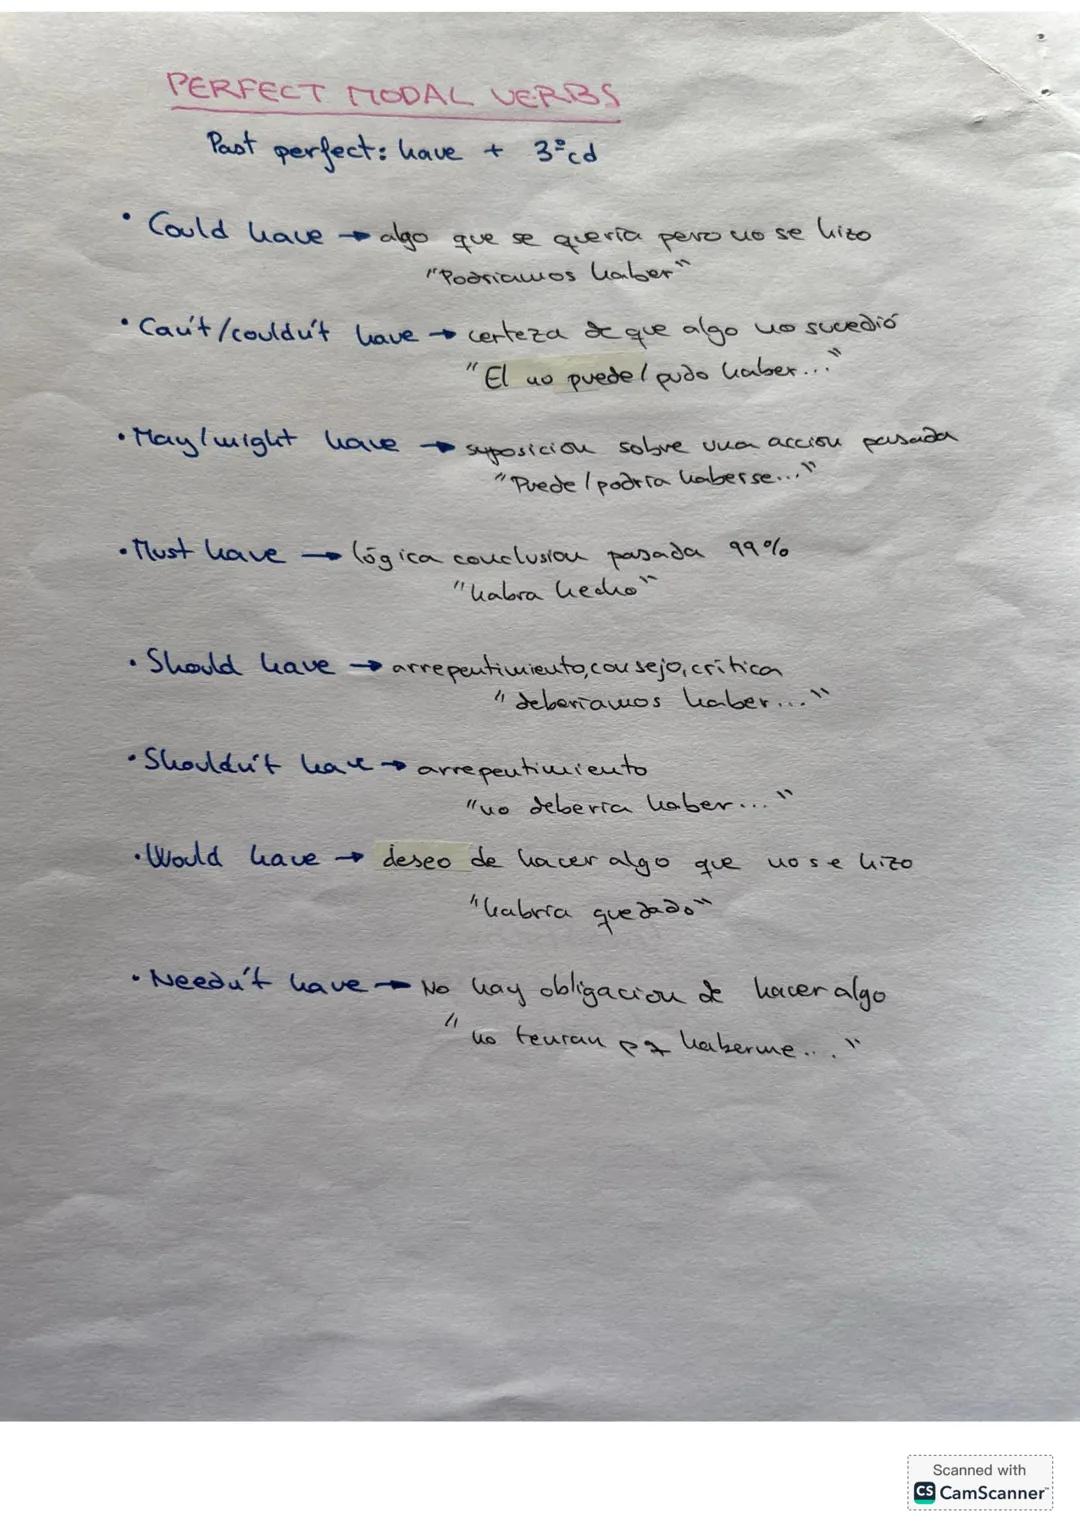 PERFECT MODAL VERBS
Past perfect: have + 3ºcd
• Could have → algo que se quería pero no se hizo
"Podriamos haber"
• Can't/couldn't have → certeza de que algo no sucedió
"El no puede/pudo haber..."
• May/might have → suposicion sobre una accion pasada
"Puede/podría haberse..."
• Must have → lógica conclusion pasada 99%
"habra hecho"
• Should have → arrepentimiento, consejo, crítica
"deberíamos haber..."
• Shouldn't have → arrepentimiento
"no debería haber..."
• Would have → deseo de hacer algo que no se hizo
"habría quedado"
• Needn't have → No hay obligacion de hacer algo
"no tenian haberme..."
Scanned with
CS CamScanner